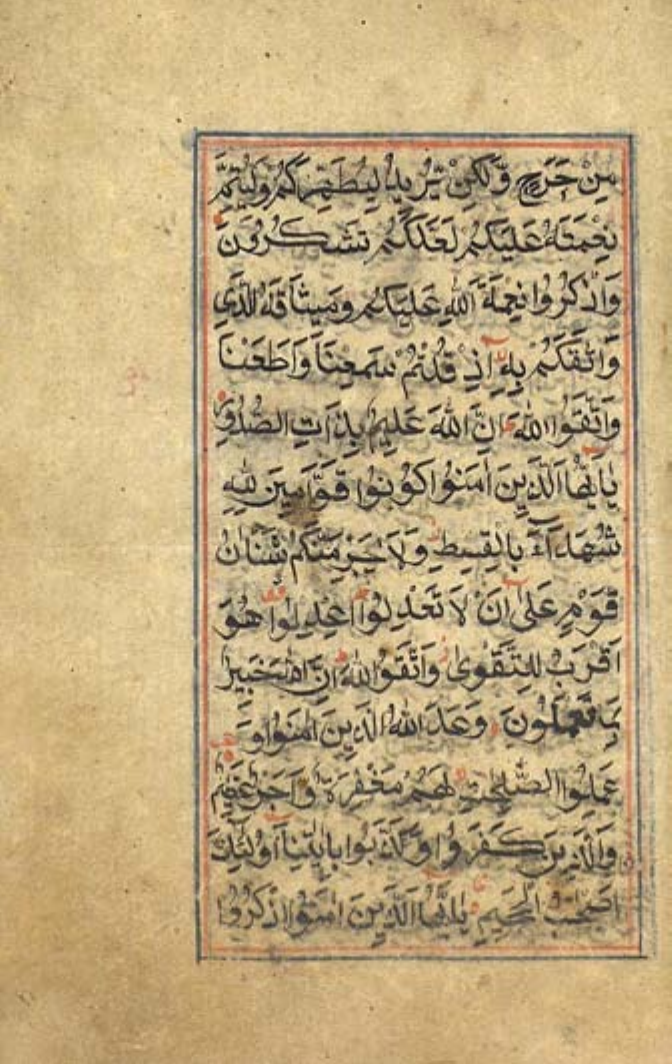 مِنْ حَرَجٍ وَّلٰكِنْ يُّرِيدُ لِيُطَهِّرَكُمْ وَلِيُتِمَّ
نِعْمَتَهُ عَلَيْكُمْ لَعَلَّكُمْ تَشْكُرُونَ
وَاذْكُرُوا نِعْمَةَ اللّٰهِ عَلَيْكُمْ وَمِيثَاقَهُ الَّذِي
وَاثَقَكُمْ بِهِ اِذْ قُلْتُمْ سَمِعْنَا وَاَطَعْنَا
وَاتَّقُوا اللّٰهَ اِنَّ اللّٰهَ عَلِيمٌ بِذَاتِ الصُّدُورِ
يَا اَيُّهَا الَّذِينَ اٰمَنُوا كُونُوا قَوَّامِينَ لِلّٰهِ
شُهَدَآءَ بِالْقِسْطِ وَلَا يَجْرِمَنَّكُمْ شَنَاٰنُ
قَوْمٍ عَلٰى اَنْ لَا تَعْدِلُوا اعْدِلُوا هُوَ
اَقْرَبُ لِلتَّقْوٰى وَاتَّقُوا اللّٰهَ اِنَّ اللّٰهَ خَبِيرٌ
بِمَا تَعْمَلُونَ وَعَدَ اللّٰهُ الَّذِينَ اٰمَنُوا وَ
عَمِلُوا الصّٰلِحٰتِ لَهُمْ مَغْفِرَةٌ وَاَجْرٌ عَظِيمٌ
وَالَّذِينَ كَفَرُوا وَكَذَّبُوا بِاٰيٰتِنَا اُولٰئِكَ
اَصْحٰبُ الْجَحِيمِ يٰاَيُّهَا الَّذِينَ اٰمَنُوا اذْكُرُوا